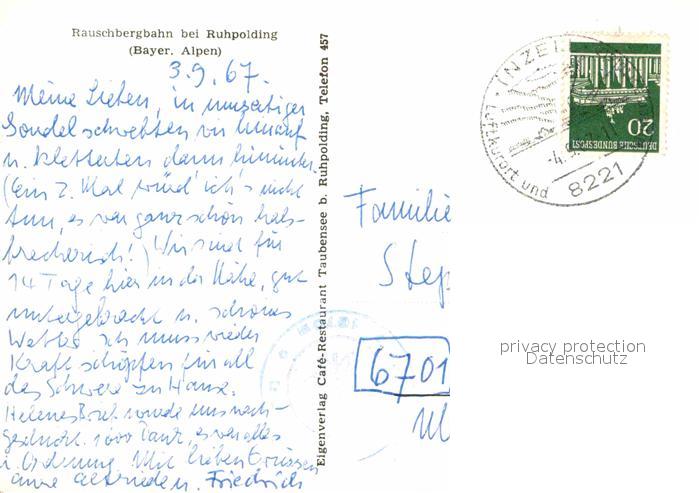 Rauschbergbahn bei Ruhpolding
(Bayer. Alpen)
3.9.67.
Meine Lieben, in umseitiger
Gondel schwebten wir hinauf
u. kletterten dann hinunter.
(ein 2. Mal würd' ich's nicht
tun, es war ganz schön hals-
brecherisch!) Wir sind für
14 Tage hier in der Nähe, gut
untergebracht u. schönes
Wetter. Ich muss wieder
Kraft schöpfen für all
das Schwere zu Hause.
Helenes Brief wurde uns nach-
geschickt. 1000 Dank, es war alles
i. Ordnung. Mit lieben Grüssen
u. Friedrich
Eigenverlag Café-Restaurant Taubensee b. Ruhpolding, Telefon 457
Familie
Step
6701
M
INZEL
Luftkurort und
-4.
8221
20
DEUTSCHE BUNDESPOST
privacy protection
Datenschutz